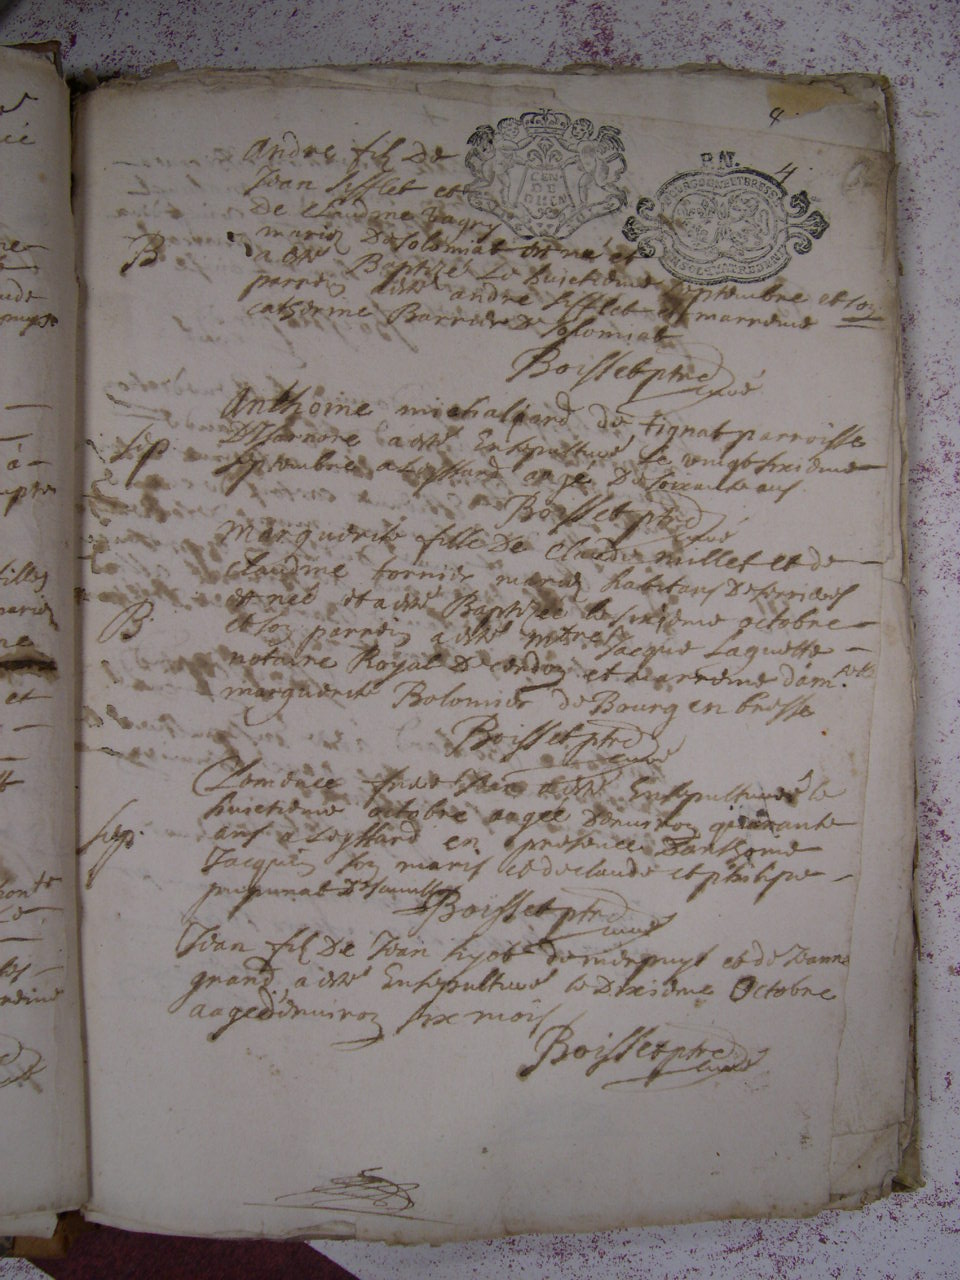 4
P.N.
4
CEN
DE
DIJON
BOURGOGNE ET BRESSE
Andre fils De
Jean Sifflet et
De Claudine Vaque
mariez De Solomiat est né et
B a esté Baptizé Le huictieme Septembre et son
parrein a esté andre Sifflet et marreine
catherine Barrier De Solomiat
Boisset ptre
curé
Anthoine michalaard de tignat parroisse
Sep. D'Isarnore a esté Ensepulturé Le vingt sixieme
Septembre a Leyssard aagé De soixante ans
Boisset ptre
curé
Marguerite fille De Claude millet et de
Claudine tornier mariez habitans De serrieres
est née et a esté Baptizée le sixieme octobre
B et son parrein a esté mtre Jacque Laguette
notaire Royal De cerdon et marreine dam.elle
marguerite Bolomier de Bourg en bresse
Boisset ptre
curé
Clemence a esté Ensepulturée le
huictieme octobre aagee Denuiron quarante
Sep. ans a Leyssard en presence D'anthoine
Jacquin son maris et de claude et philipe
Boisset ptre
curé
Jean fils De Jean de et de Jeanne
grand, a esté Ensepulturé le Dixieme Octobre
aagé d'enuiron six mois
Boisset ptre
curé